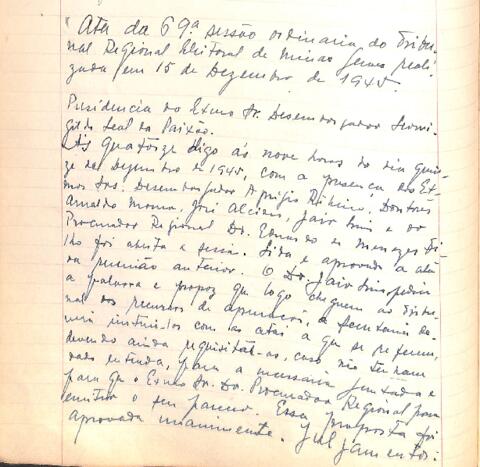 "Ata da 69ª sessão ordinaria do Tribu-
nal Regional Eleitoral de Minas Gerais reali-
zada em 15 de Dezembro de 1945.
Presidencia do Exmo Sr. Desembargador Leovi-
gildo Leal da Paixão.
Às quatorze digo ás nove horas do dia quin-
ze de Dezembro de 1945, com a presença dos Ex-
mos Srs. Desembargador Aprigio Ribeiro, Doutores
Amaldo Moura, José Alcides, Jair Lins e do
Procurador Regional Dr. Eduardo de Menezes Fi-
lho foi aberta a sessão. Lida e aprovada a ata
da reunião anterior. O Dr. Jair Lins pediu
a palavra e propoz que logo cheguem ao Tribu-
nal os recursos de apuração, a Secretaria de-
verá instrui-los com as atas a que se referem,
devendo ainda requisitál-as, caso não tenham
dado entrada, para a necessaria juntada e
para que o Exmo Sr. Dr. Procurador Regional possa
emitir o seu parecer. Essa proposta foi
aprovada unanimente. Julgamentos: